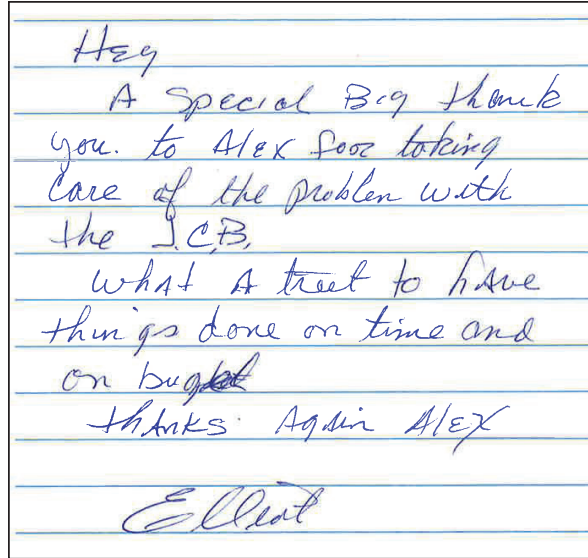 Hey
A Special Big thank
you. to Alex foor taking
Care of the problen with
the J.C.B.
What A treet to have
things done on time and
on
thanks Again Alex
Elliot